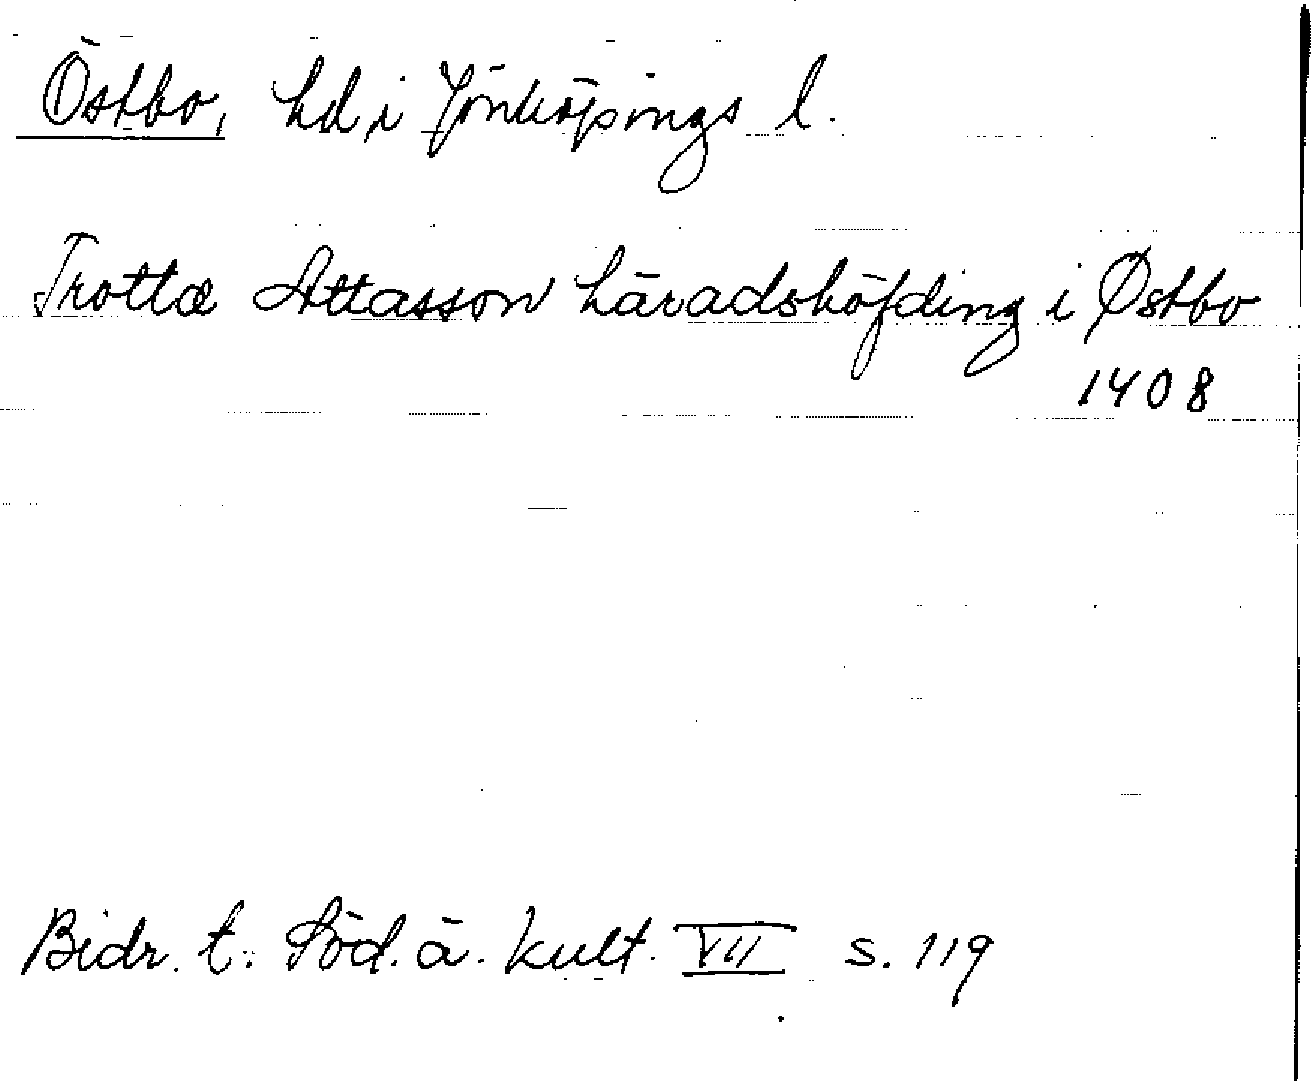 Östbo, hd i Jönköpings l.
Trottæ Attasson häradshöfding i Østbo
1408
Bidr. t. Söd. ä. kult. VII s. 119